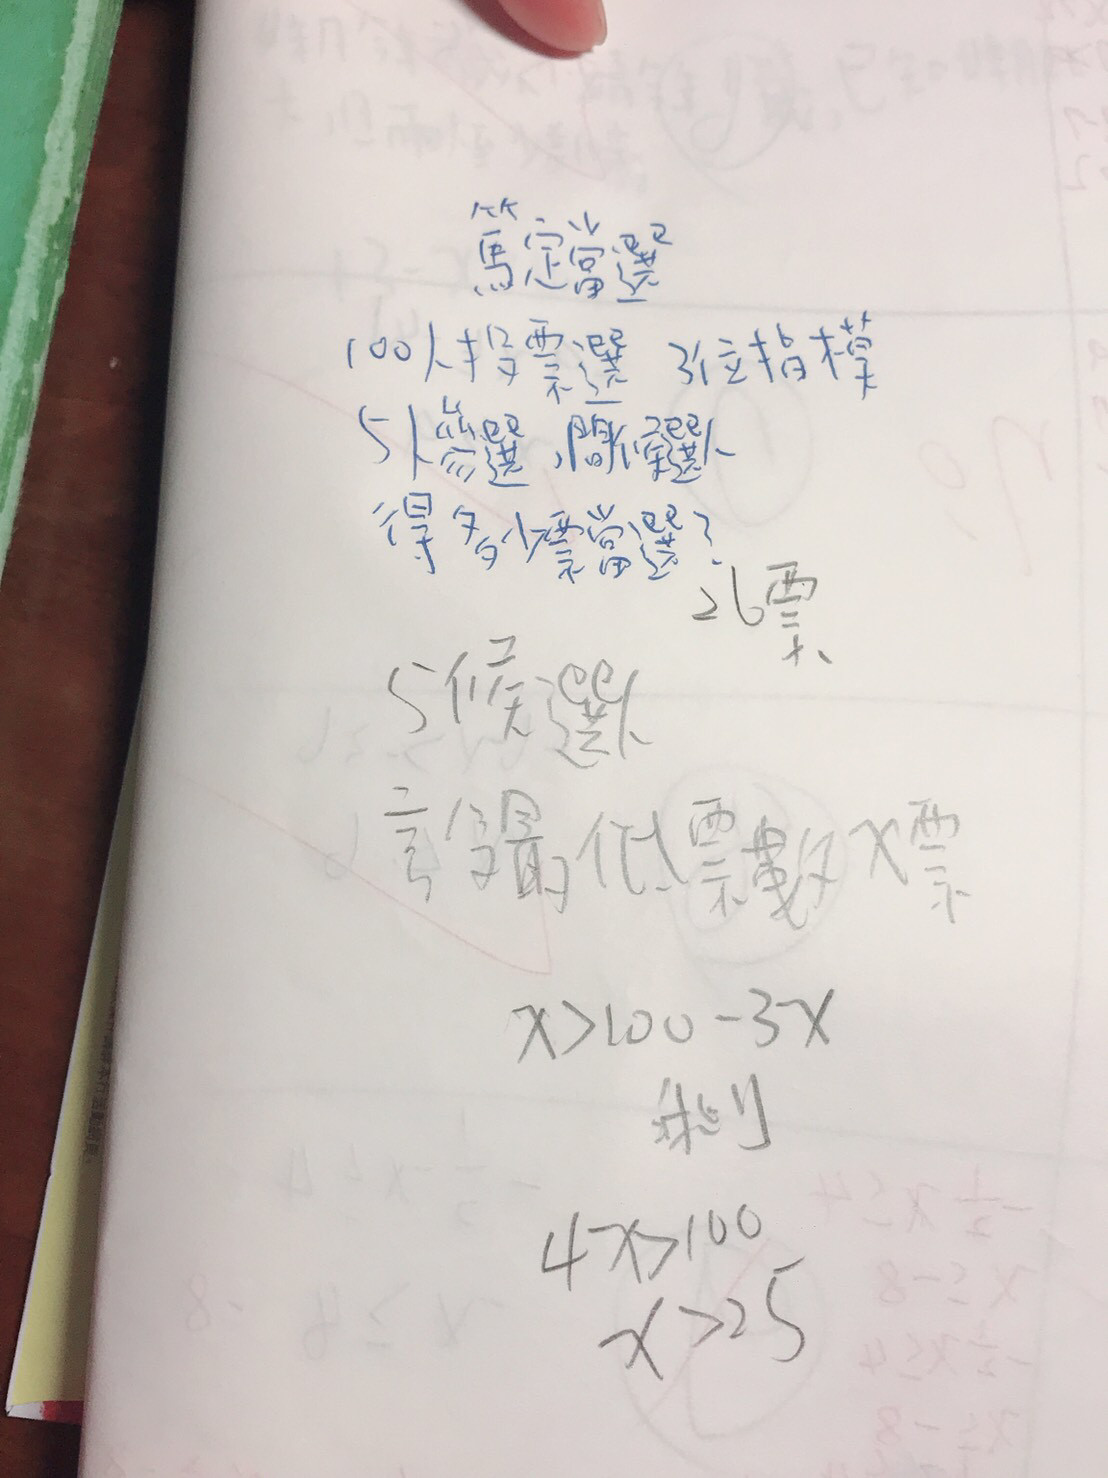 篤定當選
100人投票選 3位楷模
5人參選,問候選人
得多少票當選?
26票
5候選人
最低票數X票
x>100-3x
4x>100
x>25